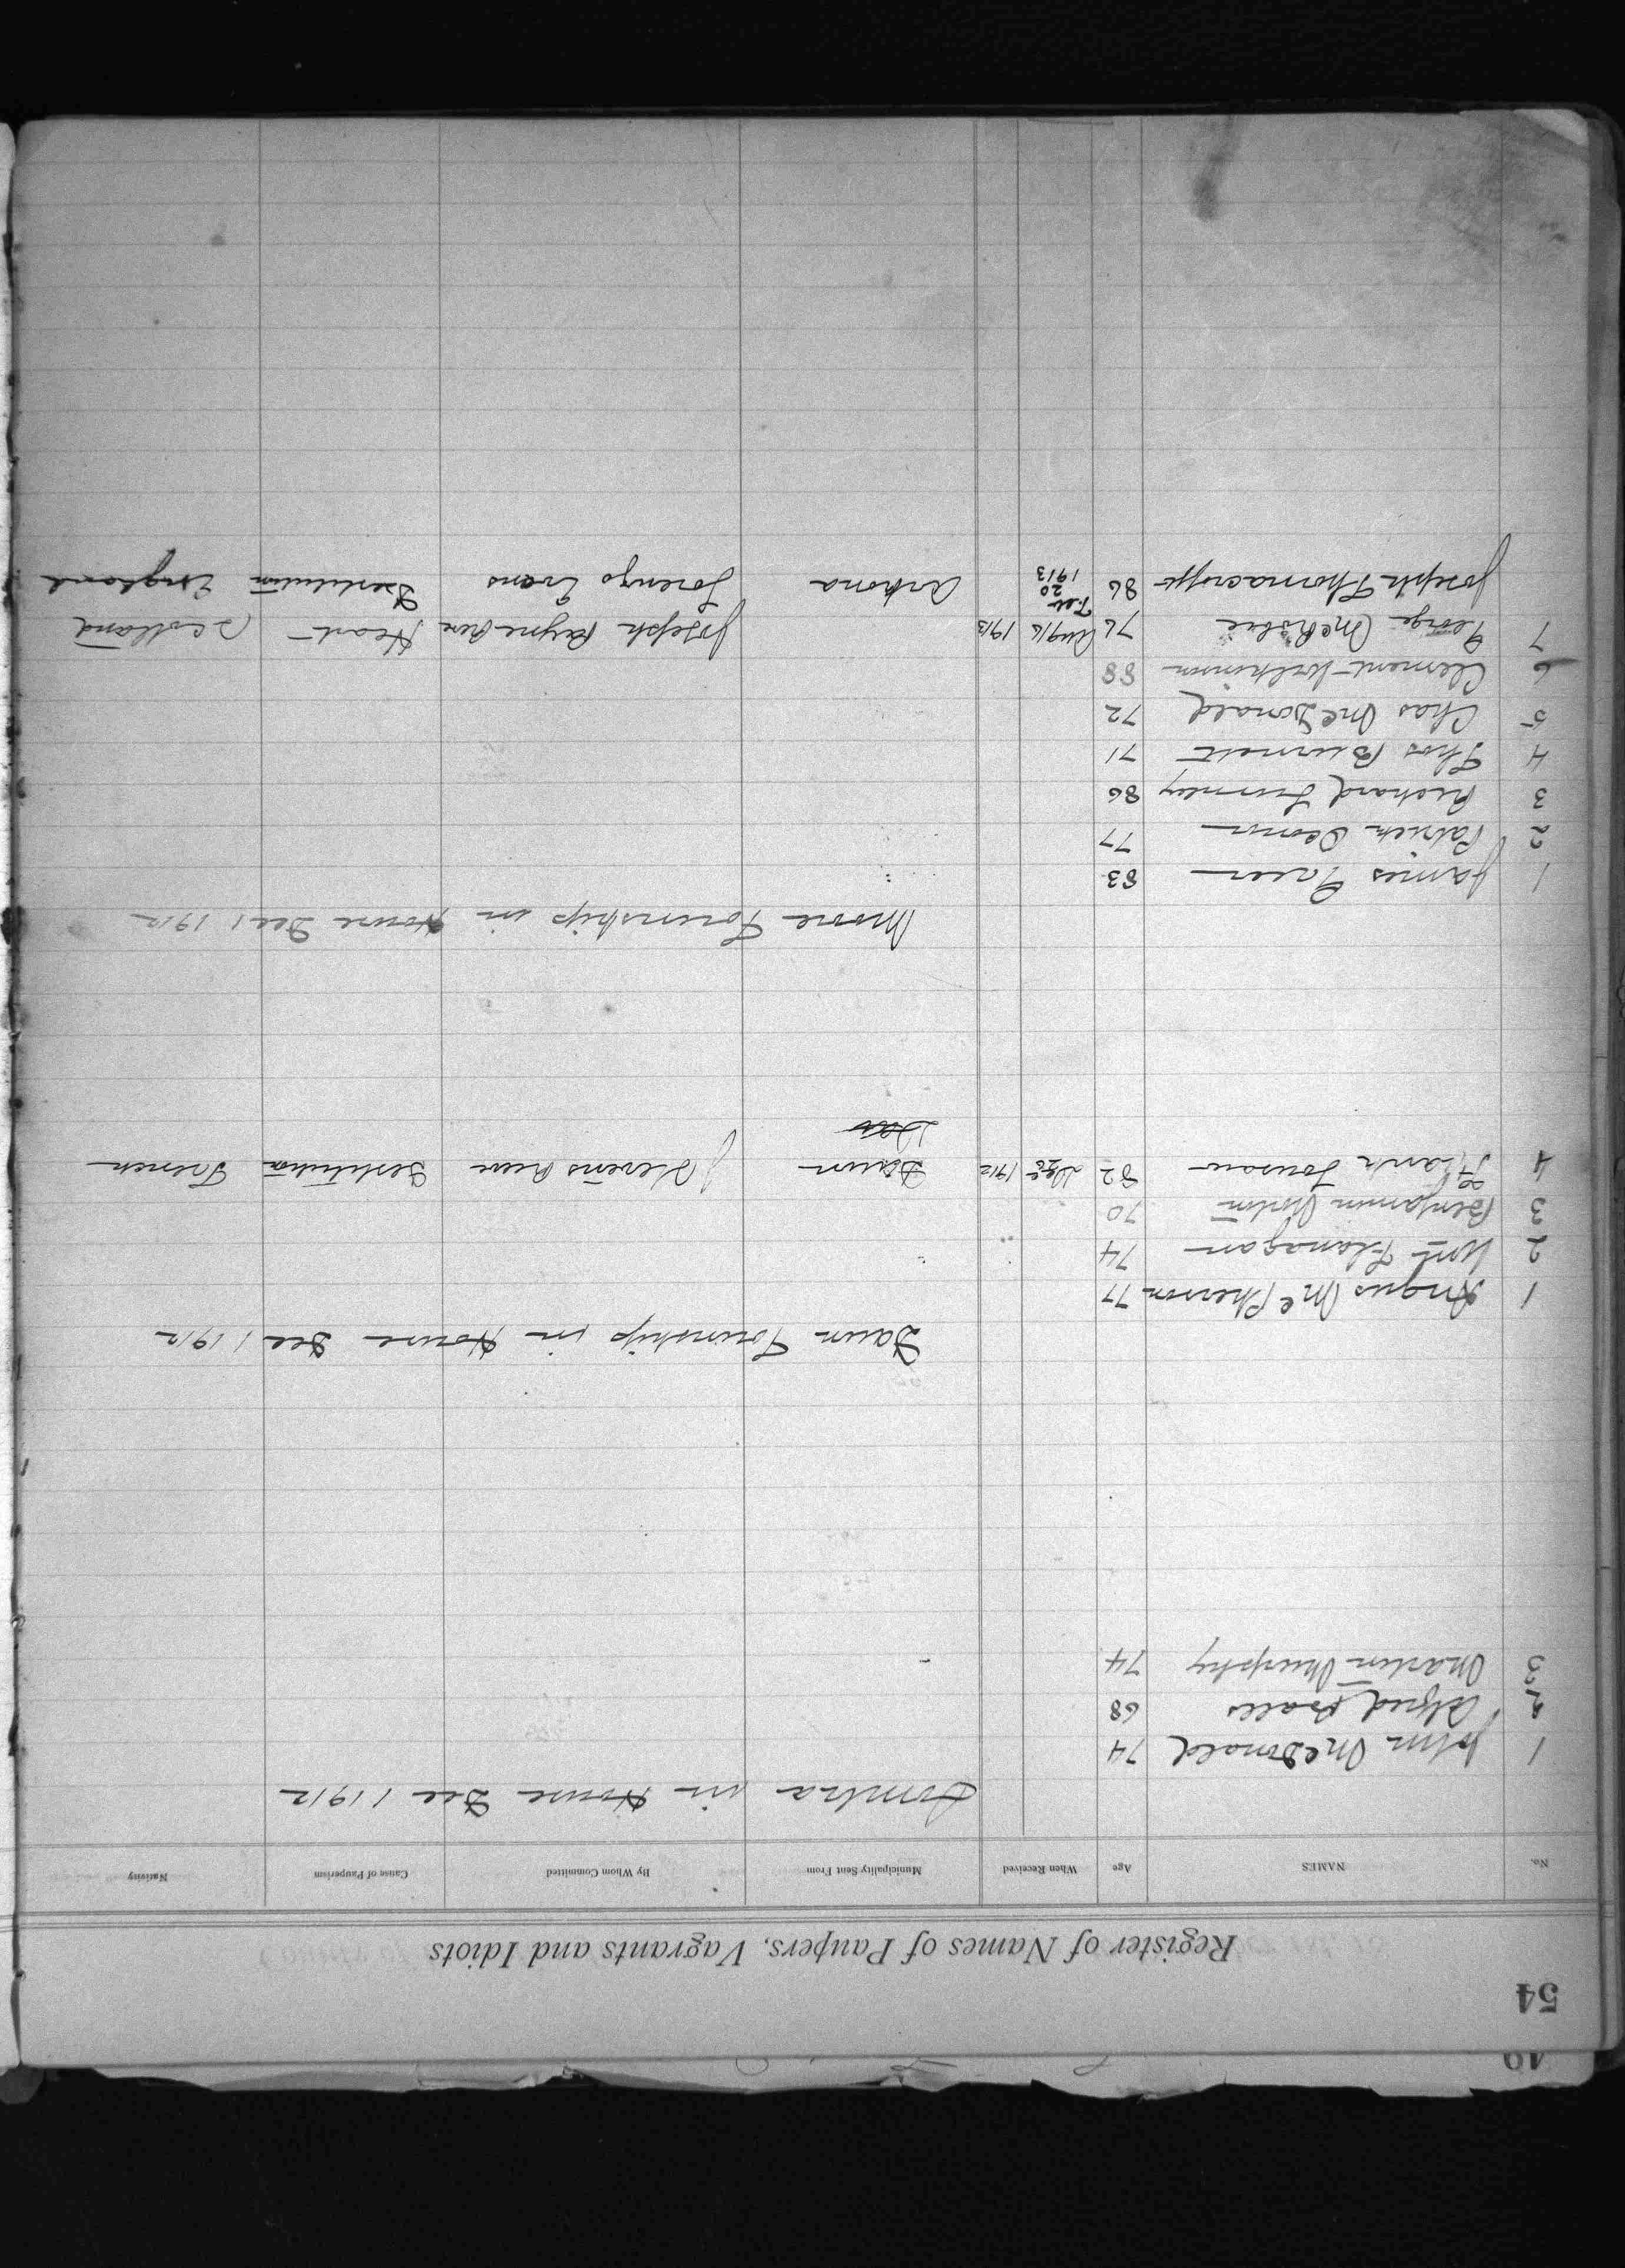 54
Register of Names of Paupers, Vagrants and Idiots
No. NAMES Age When Received Municipality Sent From By Whom Committed Cause of Pauperism Nativity
Sombra in House Dec 1 1912
1 John McDonald 74
2 Alfred Bales 68
3 Martin Murphy 74
Dawn Township in House Dec 1 1912
1 Angus McPherson 77
2 Wm Flanagan 74
3 Benjamin 70
4 Frank 82 Dec 1912 Dawn J Stevens Reeve Destitution French
Daw
Moore Township in House Dec 1 1912
1 James 83
2 Patrick Deonor 77
3 Richard Lumley 86
4 Thos Burnett 71
5 Chas McDonald 72
6 Clement Wilkinson 88
7 George McRobie 76 Aug 16 1913 Joseph Payne Reeve Heart Scotland
Joseph Thornacroft 86 Feb 20 1913 Arkona Lorenzo Evans Destitution England
49